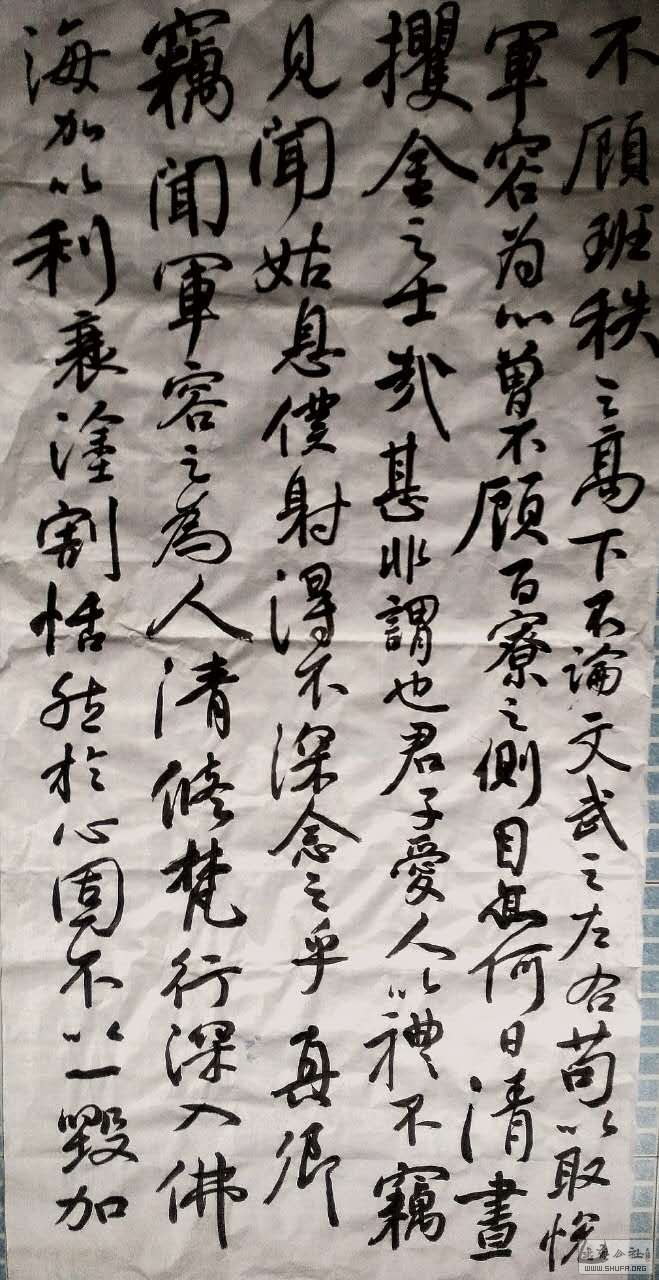 不顾班秩之高下不論文武之左右苟以取悦
軍容为心曾不顾百寮之側目亦何日清晝
攫金之士哉甚非謂也君子愛人以禮不竊
見聞姑息僕射得不深念之乎真卿
竊聞軍容之為人清修梵行深入佛
海加以利衰塗割恬然於心固不以一毀加
WWW.SHUFA.ORG